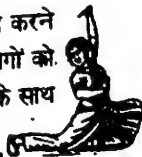 करने
गों को
के साथ